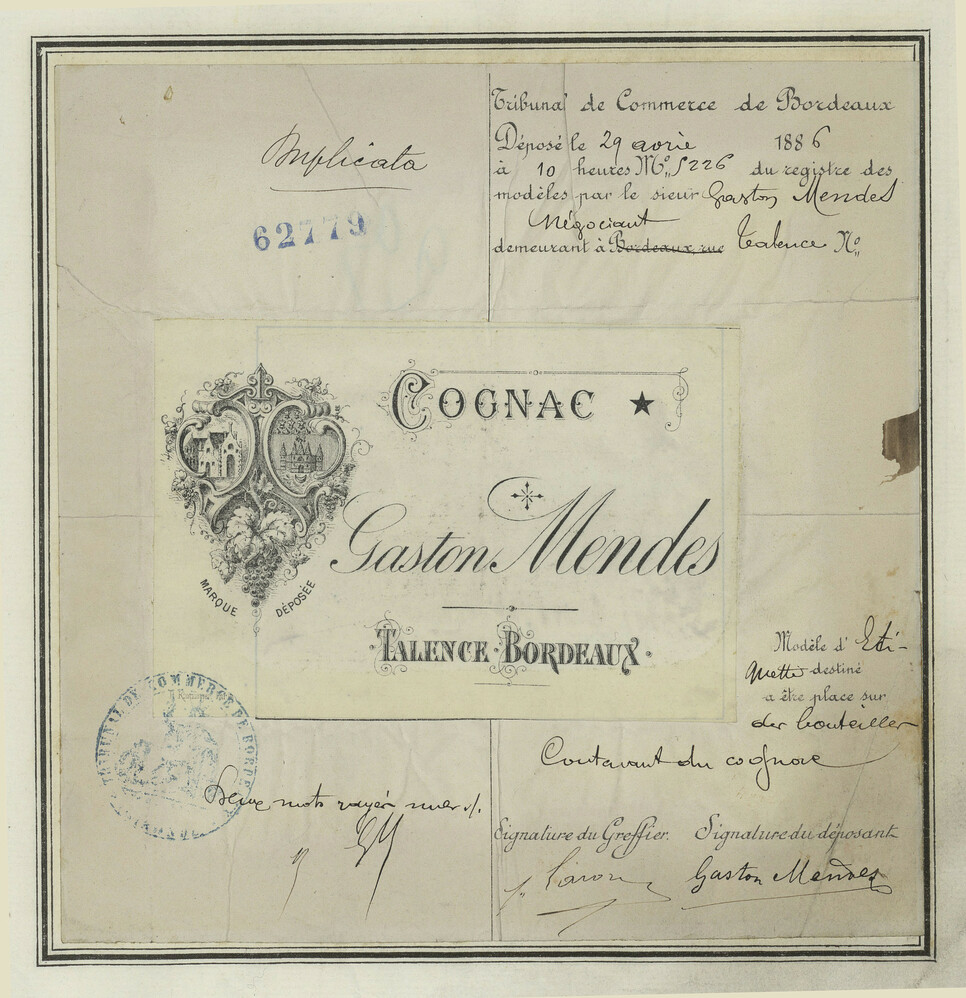 Duplicata
62779
Tribunal de Commerce de Bordeaux
Déposé le 29 avril 1886
à 10 heures M. N° 5226 du registre des
modèles par le sieur Gaston Mendes
Négociant
demeurant à Bordeaux, rue Talence N°
COGNAC ★
Gaston Mendes
MARQUE DÉPOSÉE
TALENCE · BORDEAUX
Modèle d' Eti-
quette destiné
a être place sur
des bouteilles
Contenant du cognac
TRIBUNAL DE COMMERCE DE BORDE
Deux mots rayés nuls
GM
Signature du Greffier. Signature du déposant
Gaston Mendes